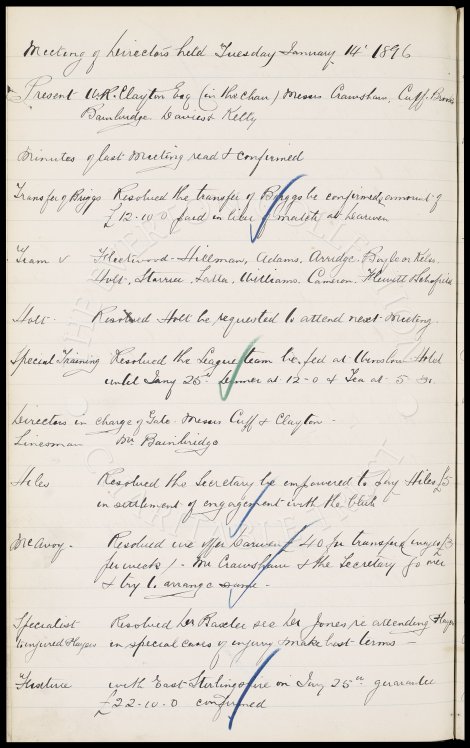 Meeting of Directors held Tuesday January 14th 1896
Present W.R. Clayton Esq (in the chair) Messrs Crawshaw, Cuff, Brooks
Bainbridge Davies & Kelly
Minutes of last Meeting read & confirmed
Transfer of Briggs Resolved the transfer of Briggs be confirmed, amount of
£12-10-0 paid in lieu of match at Darwen
Team v Fleetwood - Hillman, Adams, Arridge, Boyle or Kelso,
Holt, Storrier, Latta, Williams, Cameron, Hewitt & Schofield
Holt Resolved Holt be requested to attend next Meeting
Special Training Resolved the League team be fed at Winslow Hotel
until Jany 25th Dinner at 12-0 & Tea at 5
Directors in charge of Gate - Messrs Cuff & Clayton -
Linesman Mr Bainbridge
Hiles Resolved the Secretary be empowered to pay Hiles £5
in settlement of engagement with the Club
McAvoy. Resolved we offer Darwen £40 for transfer & wages £3
per week /- Mr Crawshaw & the Secretary go over
& try to arrange same -
Specialist Resolved Dr Baxter see Dr Jones re attending Players
to injured Players in special cases of injury & make best terms -
Fixture with East Stirlingshire on Jany 25th guarantee
£22-10-0 confirmed